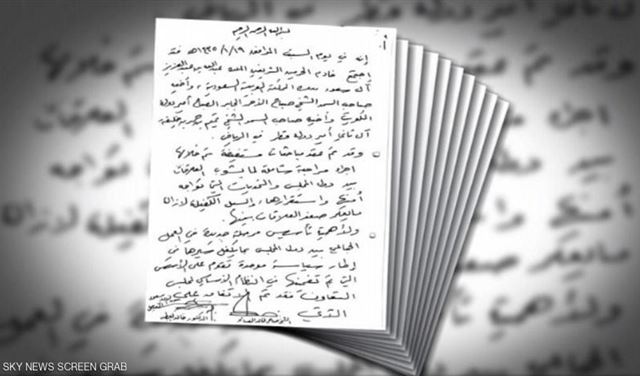 بسم الله الرحمن الرحيم
إنه في يوم السبت الموافق ١٤٣٥/١/١٩هـ فقد
اجتمع خادم الحرمين الشريفين الملك عبدالله بن عبدالعزيز
آل سعود ملك المملكة العربية السعودية، وأخيه
صاحب السمو الشيخ صباح الأحمد الجابر الصباح أمير دولة
الكويت وأخيه صاحب السمو الشيخ تميم بن حمد بن خليفة
آل ثاني أمير دولة قطر في الرياض.
وقد تم عقد مباحثات مستفيضة تم خلالها
اجراء مراجعة شاملة لما يشوب العلاقات
بين دول المجلس والتحديات التي تواجه
أمنها واستقرارها، والسبل الكفيلة لازالة
مايعكر صفو العلاقات بينها.
ولأهمية تأسيس مرحلة جديدة في العمل
الجماعي بين دول المجلس بما يكفل سيرها في
إطار سياسة موحدة تقوم على الأسس
التي تم تضمينها في النظام الأساسي لمجلس
التعاون فقد تم الاتفاق على
الآتي
SKY NEWS SCREEN GRAB